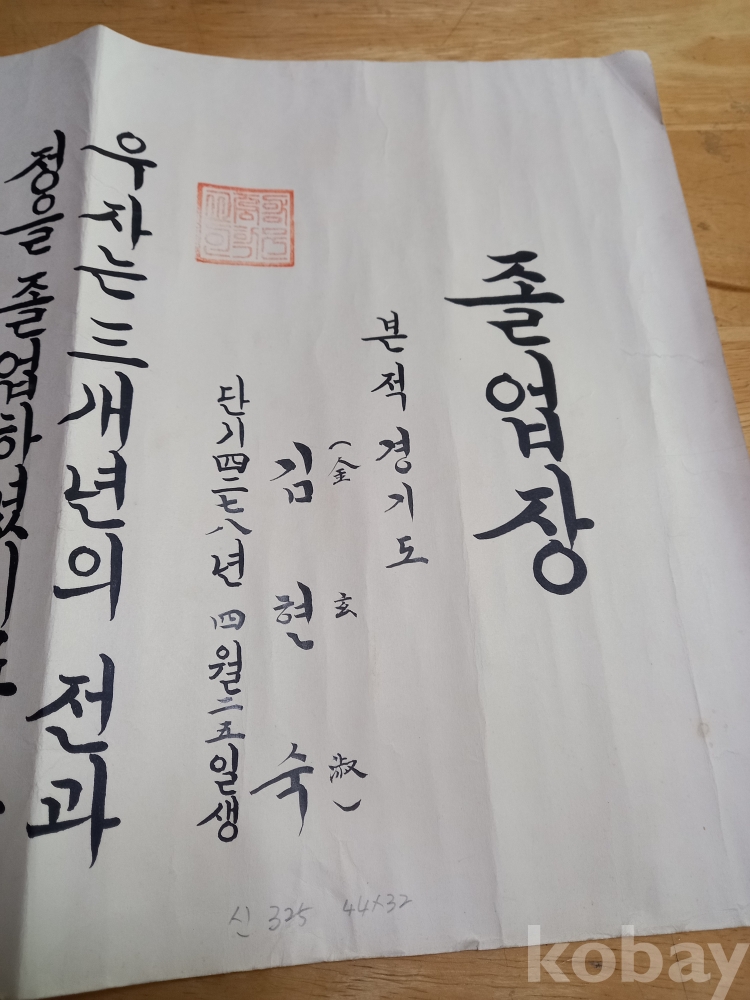 졸업장
본적 경기도
(金 玄 淑)
김 현 숙
단기四二七八년 四월二五일생
우자는 三개년의 전과
정을 졸업하였기로
신 325 44×32
kobay